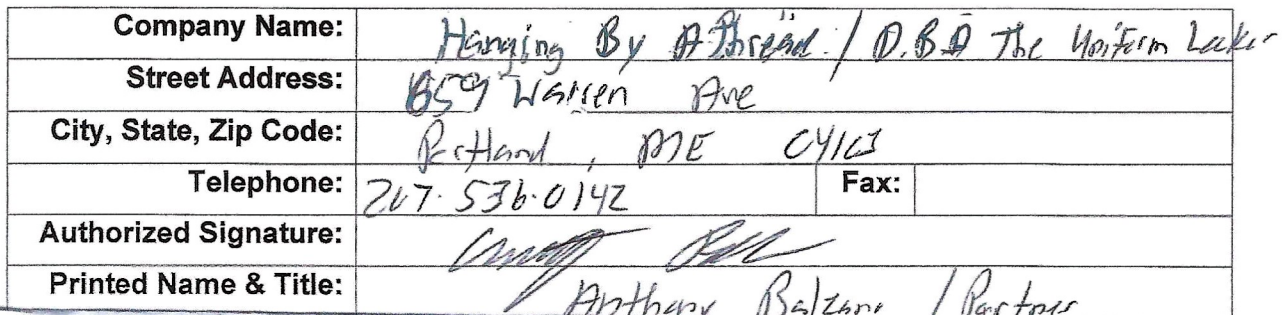 Company Name: Hanging By A Thread / D.B.A The Uniform Locker
Street Address: 859 Warren Ave
City, State, Zip Code: Portland, ME 04103
Telephone: 207.536.0142 Fax:
Authorized Signature:
Printed Name & Title: Anthony Balzano / Partner